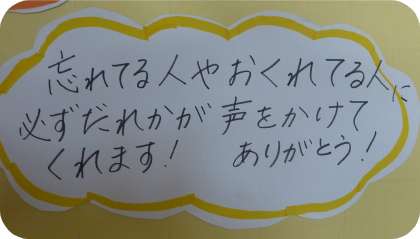 忘れてる人やおくれてる人に
必ずだれかが声をかけて
くれます! ありがとう!